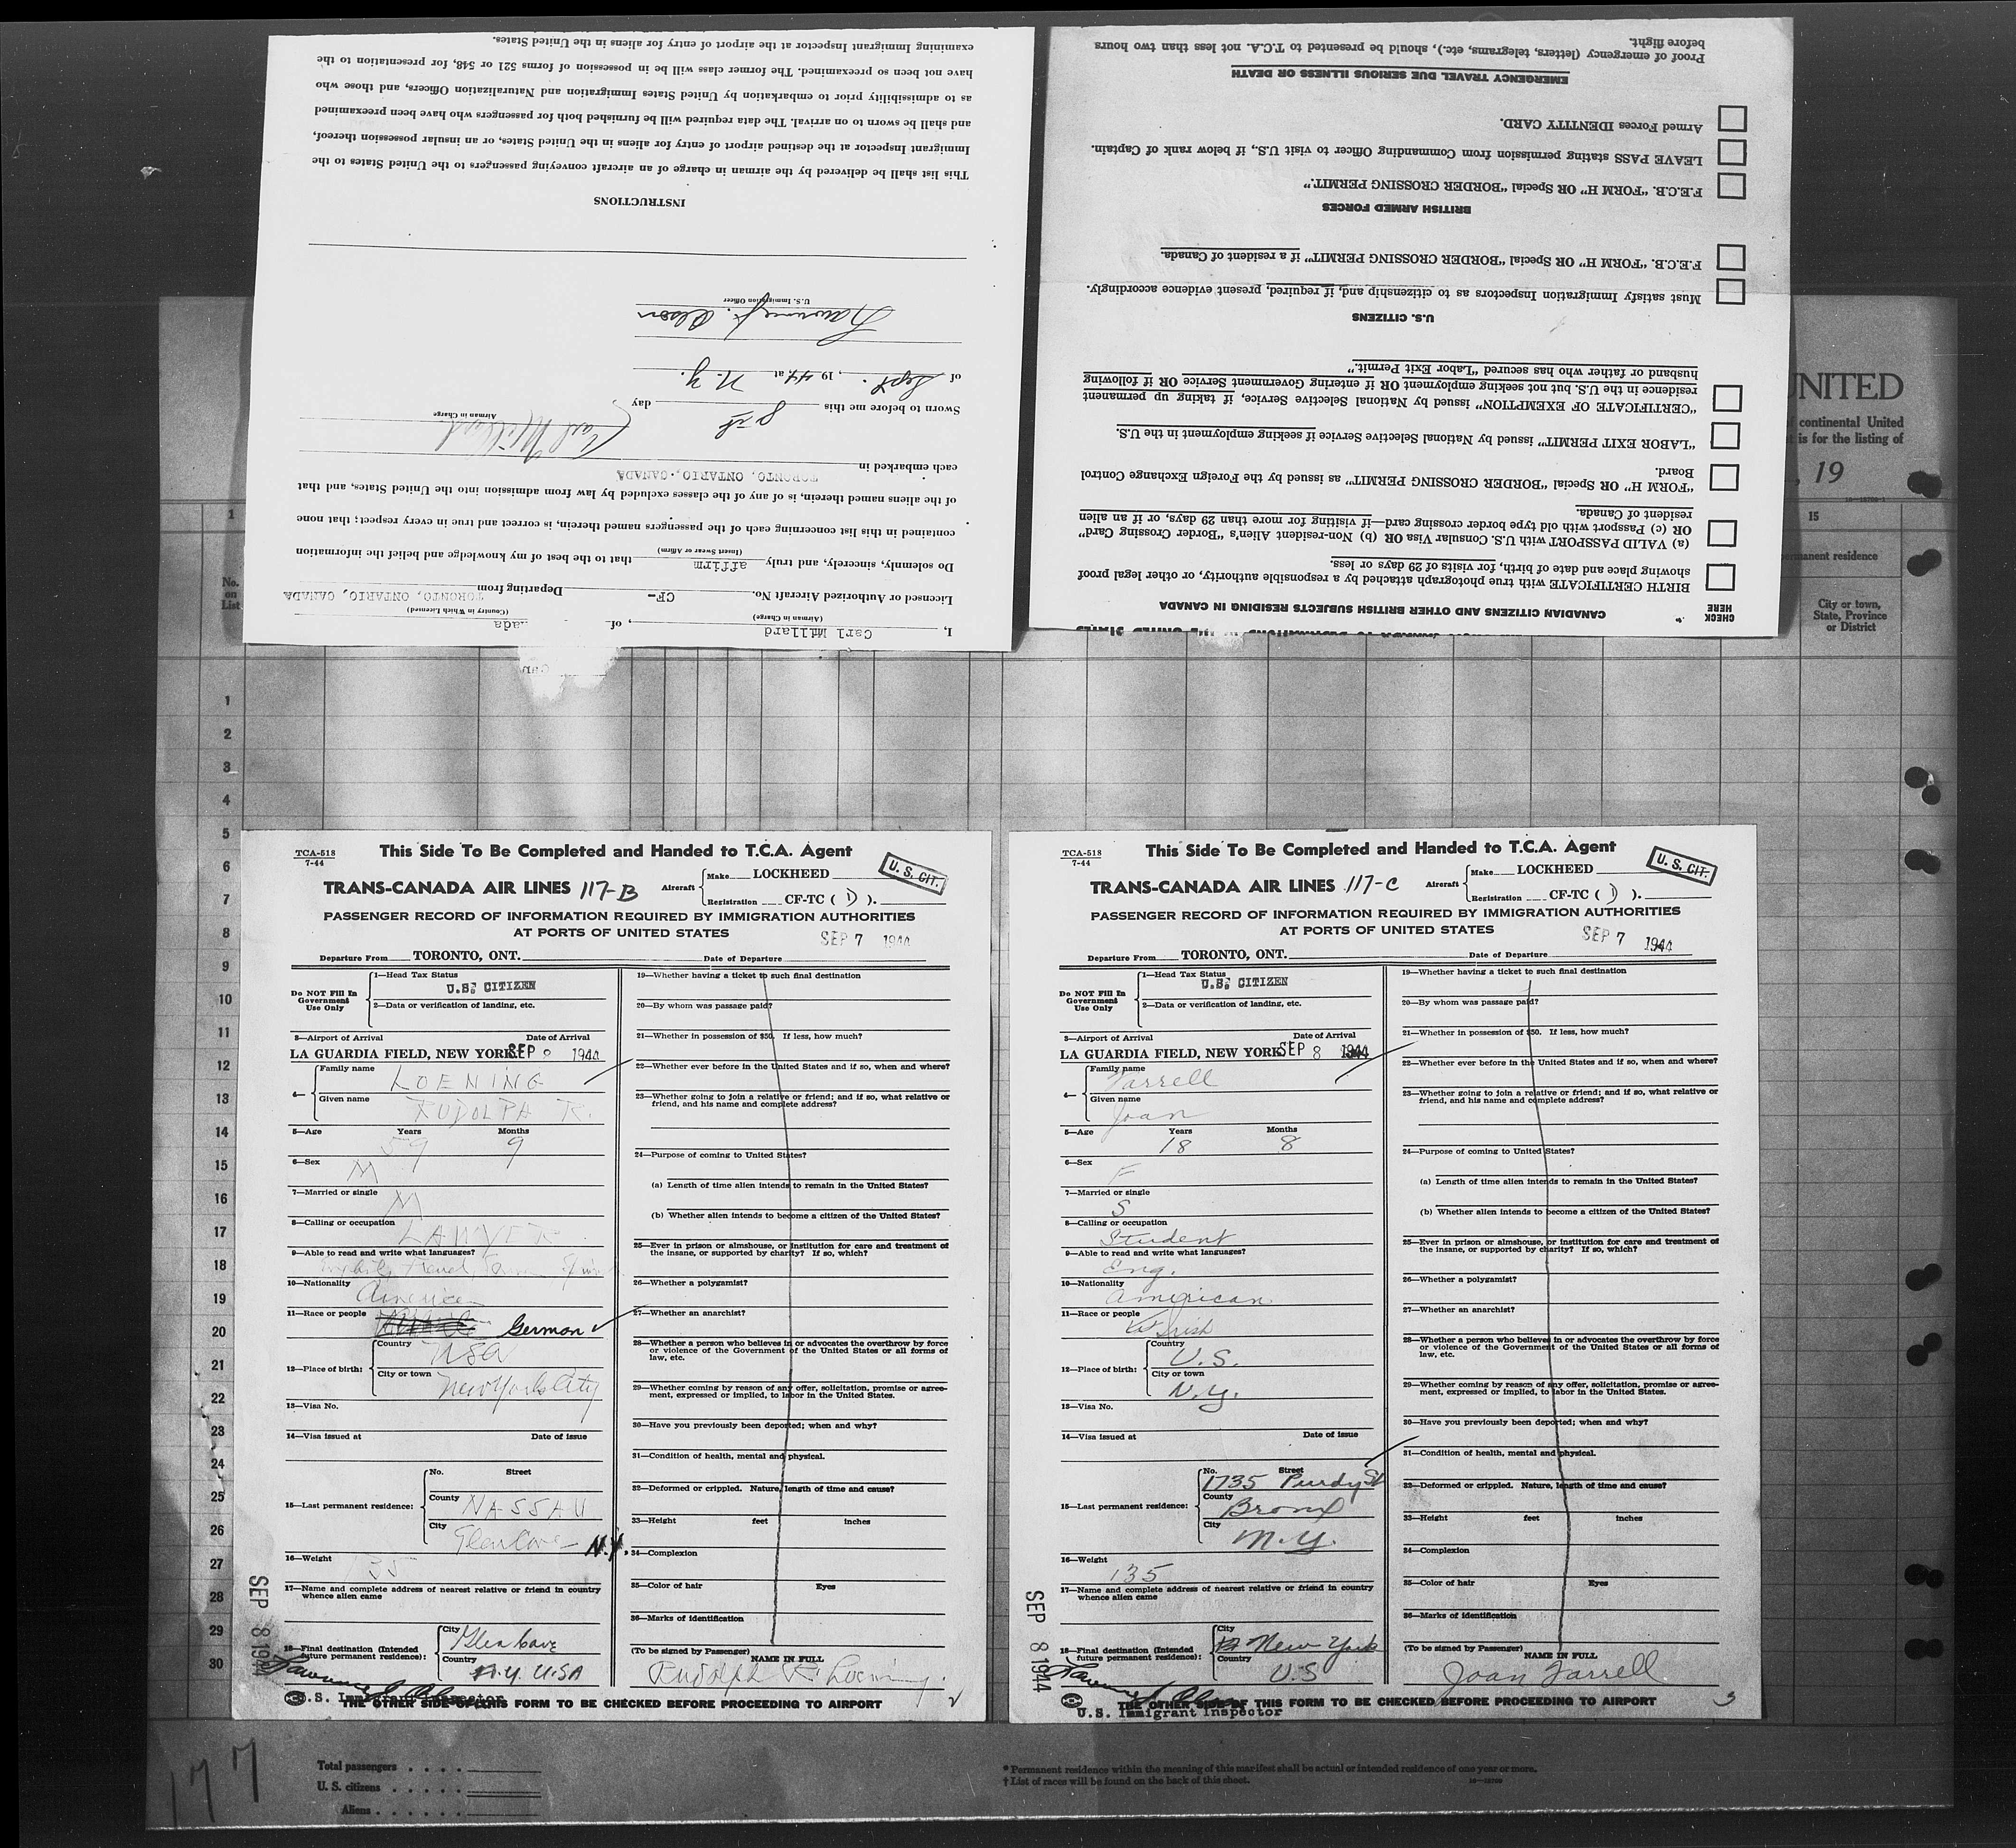 examining Immigrant Inspector at the airport of entry for aliens in the United States.
have not been so preexamined. The former class will be in possession of forms 521 or 548, for presentation to the
as to admissibility prior to embarkation by United States Immigration and Naturalization Officers, and those who
and shall be sworn to on arrival. The data required will be furnished both for passengers who have been preexamined
Immigrant Inspector at the destined airport of entry for aliens in the United States, or an insular possession thereof,
This list shall be delivered by the airman in charge of an aircraft conveying passengers to the United States to the
INSTRUCTIONS
U.S. Immigration Officer
Olson
of Sept. , 19 44 at N. Y.
Sworn to before me this 8th day
Airman in Charge
Carl Millard
each embarked in TORONTO, ONTARIO, CANADA
of the aliens named therein, is of any of the classes excluded by law from admission into the United States, and that
contained in this list concerning each of the passengers named therein, is correct and true in every respect; that none
(Insert Swear or Affirm)
Do solemnly, sincerely, and truly affirm that to the best of my knowledge and belief the information
Licensed or Authorized Aircraft No. CF- Departing from TORONTO, ONTARIO, CANADA
(Airman in Charge) (Country in Which Licensed)
I, Carl Millard , of
before flight.
Proof of emergency (letters, telegrams, etc.), should be presented to T.C.A. not less than two hours
EMERGENCY TRAVEL DUE SERIOUS ILLNESS OR DEATH
Armed Forces IDENTITY CARD.
LEAVE PASS stating permission from Commanding Officer to visit U.S., if below rank of Captain.
F.E.C.B. "FORM H" OR Special "BORDER CROSSING PERMIT."
BRITISH ARMED FORCES
F.E.C.B. "FORM H" OR Special "BORDER CROSSING PERMIT" if a resident of Canada.
Must satisfy Immigration Inspectors as to citizenship and, if required, present evidence accordingly.
U.S. CITIZENS
husband or father who has secured "Labor Exit Permit."
residence in the U.S. but not seeking employment OR if entering Government Service OR if following
"CERTIFICATE OF EXEMPTION" issued by National Selective Service, if taking up permanent
"LABOR EXIT PERMIT" issued by National Selective Service if seeking employment in the U.S.
Board.
"FORM H" OR Special "BORDER CROSSING PERMIT" as issued by the Foreign Exchange Control
resident of Canada.
OR (c) Passport with old type border crossing card—if visiting for more than 29 days, or if an alien
(a) VALID PASSPORT with U.S. Consular Visa OR (b) Non-resident Alien's "Border Crossing Card"
showing place and date of birth, for visits of 29 days or less.
BIRTH CERTIFICATE with true photograph attached by a responsible authority, or other legal proof
CANADIAN CITIZENS AND OTHER BRITISH SUBJECTS RESIDING IN CANADA
CHECK HERE
UNITED
continental United
is for the listing of
, 19
1
15
permanent residence
No. on List
City or town, State, Province or District
1
2
3
4
5
6
7
8
9
10
11
12
13
14
15
16
17
18
19
20
21
22
23
24
25
26
27
28
29
30
TCA-518
7-44
This Side To Be Completed and Handed to T.C.A. Agent
U. S. CIT.
TRANS-CANADA AIR LINES 117-B
Aircraft Make LOCKHEED
Registration CF-TC ( D ).
PASSENGER RECORD OF INFORMATION REQUIRED BY IMMIGRATION AUTHORITIES
AT PORTS OF UNITED STATES
SEP 7 1944
Departure From TORONTO, ONT. Date of Departure
Do NOT Fill In Government Use Only
1—Head Tax Status
U.S. CITIZEN
2—Data or verification of landing, etc.
3—Airport of Arrival Date of Arrival
LA GUARDIA FIELD, NEW YORK SEP 8 1944
4— Family name
LOENING
Given name
RUDOLPH R.
5—Age Years Months
59 9
6—Sex
M
7—Married or single
M
8—Calling or occupation
LAWYER
9—Able to read and write what languages?
10—Nationality
American
11—Race or people German
12—Place of birth: Country
USA
City or town
New York City
13—Visa No.
14—Visa issued at Date of issue
15—Last permanent residence: No. Street
County NASSAU
City Glen Cove N.Y.
16—Weight
135
17—Name and complete address of nearest relative or friend in country
whence alien came
18—Final destination (Intended future permanent residence): City
Glen Cove
Country
N.Y. USA
19—Whether having a ticket to such final destination
20—By whom was passage paid?
21—Whether in possession of $50. If less, how much?
22—Whether ever before in the United States and if so, when and where?
23—Whether going to join a relative or friend; and if so, what relative or
friend, and his name and complete address?
24—Purpose of coming to United States?
(a) Length of time alien intends to remain in the United States?
(b) Whether alien intends to become a citizen of the United States?
25—Ever in prison or almshouse, or institution for care and treatment of
the insane, or supported by charity? If so, which?
26—Whether a polygamist?
27—Whether an anarchist?
28—Whether a person who believes in or advocates the overthrow by force
or violence of the Government of the United States or all forms of
law, etc.
29—Whether coming by reason of any offer, solicitation, promise or agree-
ment, expressed or implied, to labor in the United States.
30—Have you previously been deported; when and why?
31—Condition of health, mental and physical.
32—Deformed or crippled. Nature, length of time and cause?
33—Height feet inches
34—Complexion
35—Color of hair Eyes
36—Marks of identification
(To be signed by Passenger)
NAME IN FULL
Rudolph R. Loening
SEP 8 1944
U.S. Immigrant Inspector
THE OTHER SIDE OF THIS FORM TO BE CHECKED BEFORE PROCEEDING TO AIRPORT
TCA-518
7-44
This Side To Be Completed and Handed to T.C.A. Agent
U. S. CIT.
TRANS-CANADA AIR LINES 117-C
Aircraft Make LOCKHEED
Registration CF-TC ( D ).
PASSENGER RECORD OF INFORMATION REQUIRED BY IMMIGRATION AUTHORITIES
AT PORTS OF UNITED STATES
SEP 7 1944
Departure From TORONTO, ONT. Date of Departure
Do NOT Fill In Government Use Only
1—Head Tax Status
U.S. CITIZEN
2—Data or verification of landing, etc.
3—Airport of Arrival Date of Arrival
LA GUARDIA FIELD, NEW YORK SEP 8 1944
4— Family name
Farrell
Given name
Joan
5—Age Years Months
18 8
6—Sex
F
7—Married or single
S
8—Calling or occupation
Student
9—Able to read and write what languages?
Eng.
10—Nationality
American
11—Race or people
Irish
12—Place of birth: Country
U.S.
City or town
N.Y.
13—Visa No.
14—Visa issued at Date of issue
15—Last permanent residence: No. Street
1735 Purdy St
County
Bronx
City
N.Y.
16—Weight
135
17—Name and complete address of nearest relative or friend in country
whence alien came
18—Final destination (Intended future permanent residence): City
New York
Country
U.S
19—Whether having a ticket to such final destination
20—By whom was passage paid?
21—Whether in possession of $50. If less, how much?
22—Whether ever before in the United States and if so, when and where?
23—Whether going to join a relative or friend; and if so, what relative or
friend, and his name and complete address?
24—Purpose of coming to United States?
(a) Length of time alien intends to remain in the United States?
(b) Whether alien intends to become a citizen of the United States?
25—Ever in prison or almshouse, or institution for care and treatment of
the insane, or supported by charity? If so, which?
26—Whether a polygamist?
27—Whether an anarchist?
28—Whether a person who believes in or advocates the overthrow by force
or violence of the Government of the United States or all forms of
law, etc.
29—Whether coming by reason of any offer, solicitation, promise or agree-
ment, expressed or implied, to labor in the United States.
30—Have you previously been deported; when and why?
31—Condition of health, mental and physical.
32—Deformed or crippled. Nature, length of time and cause?
33—Height feet inches
34—Complexion
35—Color of hair Eyes
36—Marks of identification
(To be signed by Passenger)
NAME IN FULL
Joan Farrell
SEP 8 1944
THE OTHER SIDE OF THIS FORM TO BE CHECKED BEFORE PROCEEDING TO AIRPORT
3
U.S. Immigrant Inspector
177
Total passengers
U. S. citizens
Aliens
* Permanent residence within the meaning of this manifest shall be actual or intended residence of one year or more.
† List of races will be found on the back of this sheet.